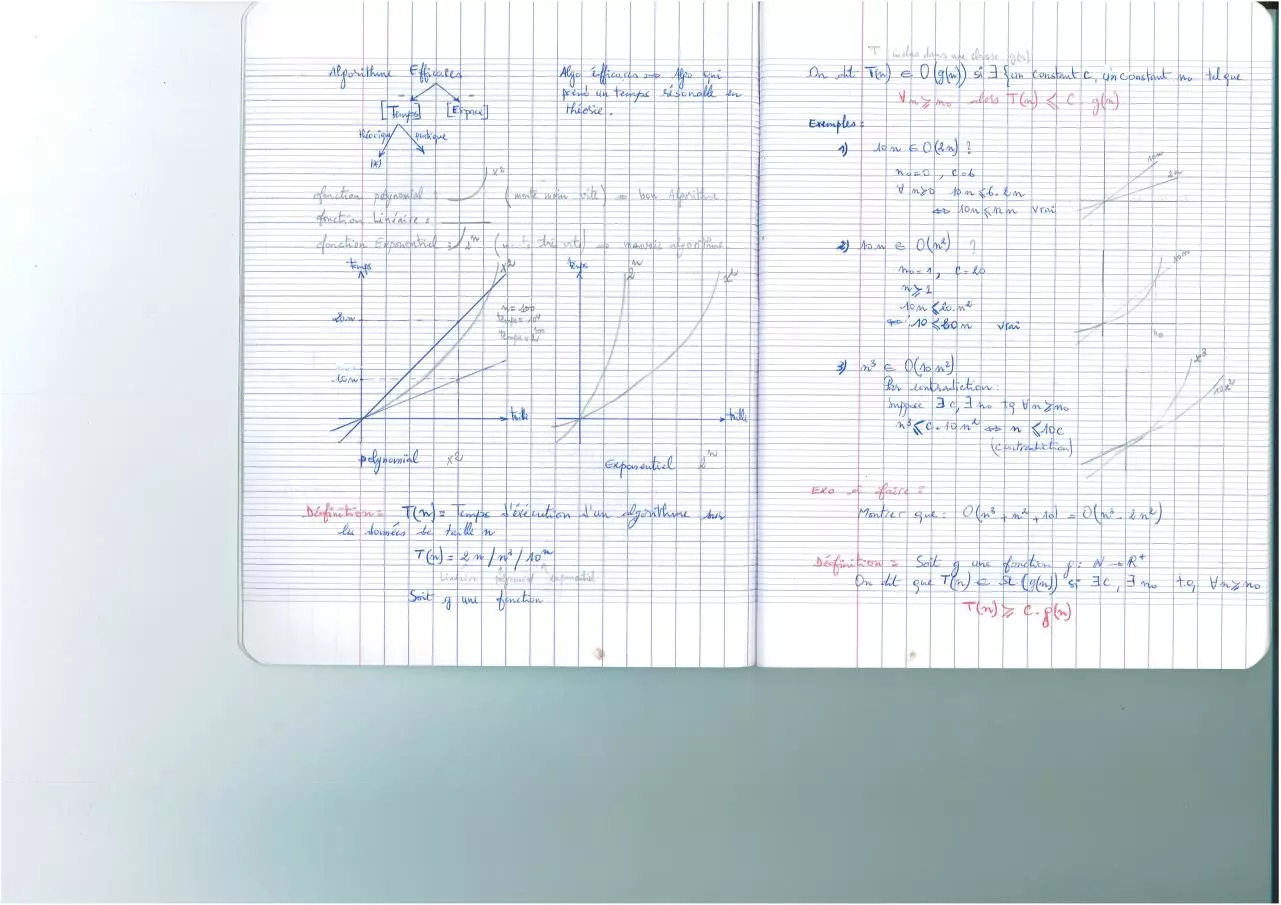 Algorithme Efficaces
[Temps] [Espace]
théorique pratique
(x)
Algo éfficaces => Algo qui
prend un temps résonable en
théorie.
fonction polynomial : x²
(monte moin vite) => bon Algorithme
fonction Linéaire :
fonction Exponentiel : 2ⁿ
très vite) => mauvais algorithme.
temps
x²
20n
10n
taille
n = 100
temps = 10⁴
temps = 2¹⁰⁰
polynomial x²
temps
2ⁿ
x²
taille
Exponentiel 2ⁿ
Déofinition = T(n) = Temps d'éxécution d'un algorithme sur
les données de taille n
T(n) = 2n / n³ / 10ⁿ
Linéaire polynomial exponentiel
Soit g une fonction
T inclus dans une classe g(n)
On dit T(n) ∈ O(g(n)) si ∃ { un constant c, un constant n₀ tel que
∀n ⩾ n₀ alors T(n) ⩽ C. g(n)
Exemples :
1) 10n ∈ O(2n) ?
n₀ = 0, C = 6
∀ n>0 10n ⩽ 6.2n
⇔ 10n ⩽ 12n vrai
10n
2n
2) 10n ∈ O(n²) ?
n₀ = 1, C = 20
n ⩾ 1
10n ⩽ 20.n²
⇔ 10 ⩽ 20n vrai
10n
n₀
3) n³ ∈ O(10n²)
Par contradiction :
Suppose ∃ c, ∃ n₀ tq ∀n ⩾ n₀
n³ ⩽ C. 10n² ⇔ n ⩽ 10c
(contradiction)
x³
10x²
Exo à faire =
Montrer que : O(n³ + n² + 10) = O(n³ - 2n²)
Déofinition = Soit g une fonction g : N → R⁺
On dit que T(n) ∈ Ω(g(n)) si ∃c, ∃ n₀ tq ∀n ⩾ n₀
T(n) ⩾ C. g(n)